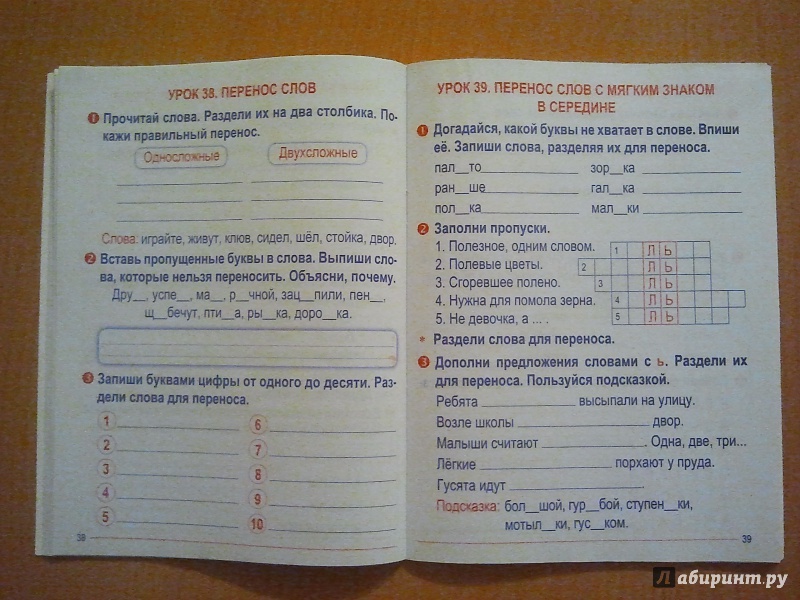 УРОК 38. ПЕРЕНОС СЛОВ
1 Прочитай слова. Раздели их на два столбика. По-
кажи правильный перенос.
Односложные Двухсложные
Слова: играйте, живут, клюв, сидел, шёл, стойка, двор.
2 Вставь пропущенные буквы в слова. Выпиши сло-
ва, которые нельзя переносить. Объясни, почему.
Дру__, успе__, ма__, р__чной, зац__пили, пен__,
щ__бечут, пти__а, ры__ка, доро__ка.
3 Запиши буквами цифры от одного до десяти. Раз-
дели слова для переноса.
1 6
2 7
3 8
4 9
5 10
38
УРОК 39. ПЕРЕНОС СЛОВ С МЯГКИМ ЗНАКОМ
В СЕРЕДИНЕ
1 Догадайся, какой буквы не хватает в слове. Впиши
её. Запиши слова, разделяя их для переноса.
пал__то зор__ка
ран__ше гал__ка
пол__ка мал__ки
2 Заполни пропуски.
1. Полезное, одним словом.
2. Полевые цветы.
3. Сгоревшее полено.
4. Нужна для помола зерна.
5. Не девочка, а ... .
1 Л Ь
2 Л Ь
3 Л Ь
4 Л Ь
5 Л Ь
* Раздели слова для переноса.
3 Дополни предложения словами с ь. Раздели их
для переноса. Пользуйся подсказкой.
Ребята __________ высыпали на улицу.
Возле школы __________ двор.
Малыши считают __________. Одна, две, три...
Лёгкие __________ порхают у пруда.
Гусята идут __________.
Подсказка: бол__шой, гур__бой, ступен__ки,
мотыл__ки, гус__ком.
39
Лабиринт.ру